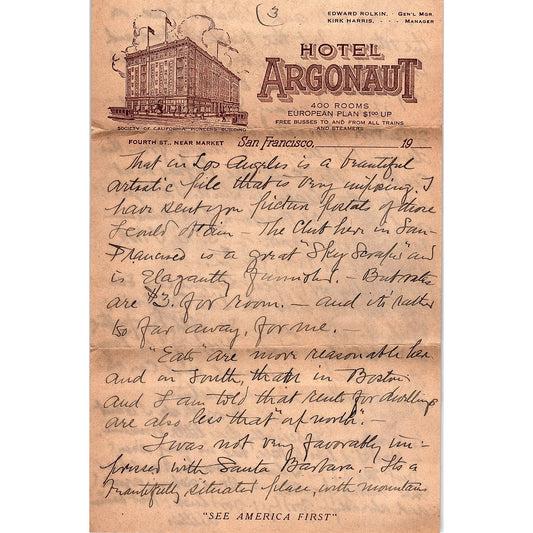 3
EDWARD ROLKIN, - GEN'L MGR.
KIRK HARRIS, - - - MANAGER
HOTEL
ARGONAUT
400 ROOMS
EUROPEAN PLAN $1.00 UP
FREE BUSSES TO AND FROM ALL TRAINS
AND STEAMERS
SOCIETY OF CALIFORNIA PIONEERS BUILDING
FOURTH ST., NEAR MARKET San Francisco, 19
That in Los Angeles is a beautiful
artistic pile that is very imposing. I
have sent you picture postals of those
I could obtain - The Club here in San-
Francisco is a great "Sky Scraper" and
is Elegantly furnished. - But rates
are $3. for room. - and it's rather
too far away, for me. -
"Eats" are more reasonable here
and in South, than in Boston
and I am told that rents for dwellings
are also less that "up north". -
I was not very favorably im-
pressed with Santa Barbara. - Its a
beautifully situated place, with mountains
"SEE AMERICA FIRST"